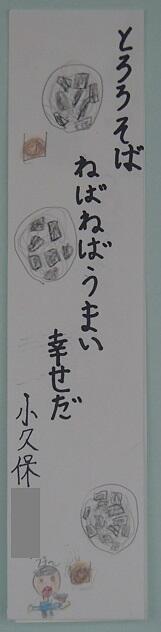 とろろそば
ねばねばうまい
幸せだ
小久保